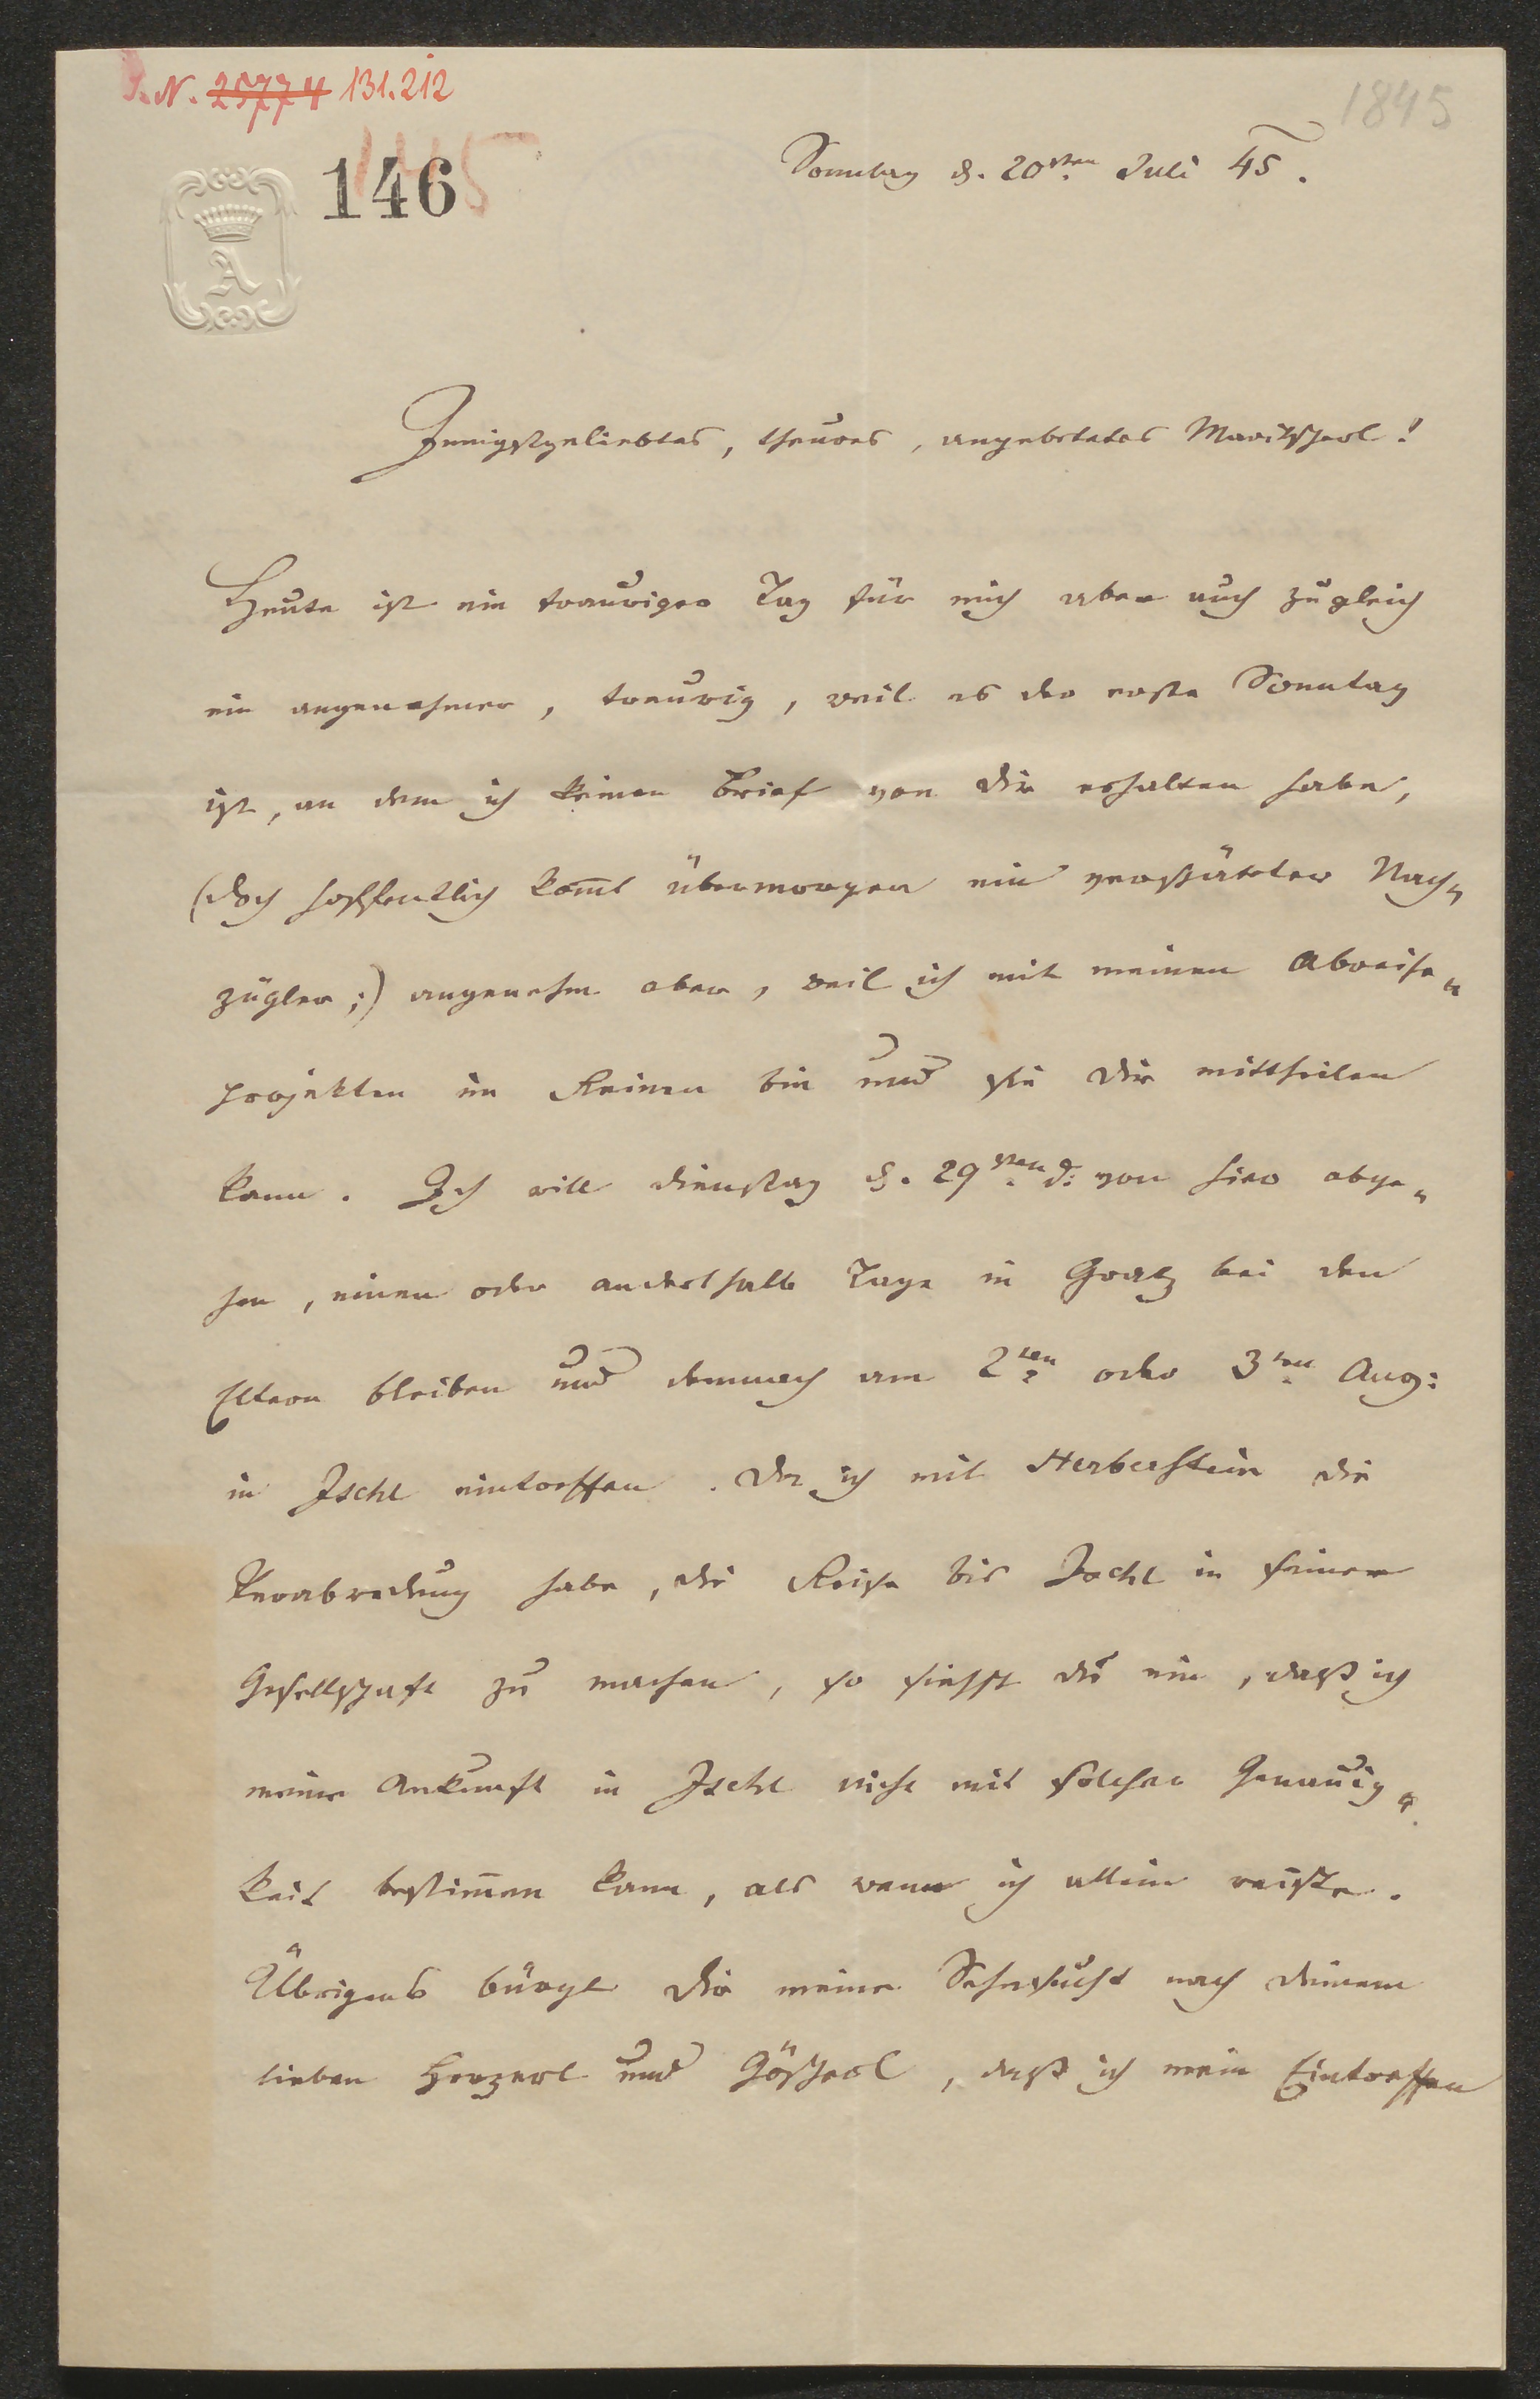 I. N. 25774 131.212
1845
146
145
A
Sonntag d. 20sten Juli 45.
Innigstgeliebtes, theures, angebetetes Maritscherl!
Heute ist ein trauriger Tag für mich aber auch zugleich
ein angenehmer, traurig, weil es der erste Sonntag
ist, an dem ich keinen Brief von dir erhalten habe,
(doch hoffentlich kom̅t übermorgen ein verspäteter Nach„
zügler;) angenehm aber, weil ich mit meinen Abreise„
projekten im Reinen bin und sie dir mittheilen
kann. Ich will Dienstag d. 29sten d: von hier abge„
hen, einen oder anderthalb Tage in Gratz bei den
Eltern bleiben und demnach am 2ten oder 3ten Aug:
in Ischl eintreffen. Da ich mit Herberstein die
Verabredung habe, die Reise bis Ischl in seiner
Gesellschaft zu machen, so siehst du ein, daß ich
meine Ankunft in Ischl nicht mit solcher Genauig„
keit bestim̅en kann, als wenn ich allein reiste.
Übrigens bürgt dir meine Sehnsucht nach deinem
lieben Herzerl und Göscherl, daß ich mein Eintreffen